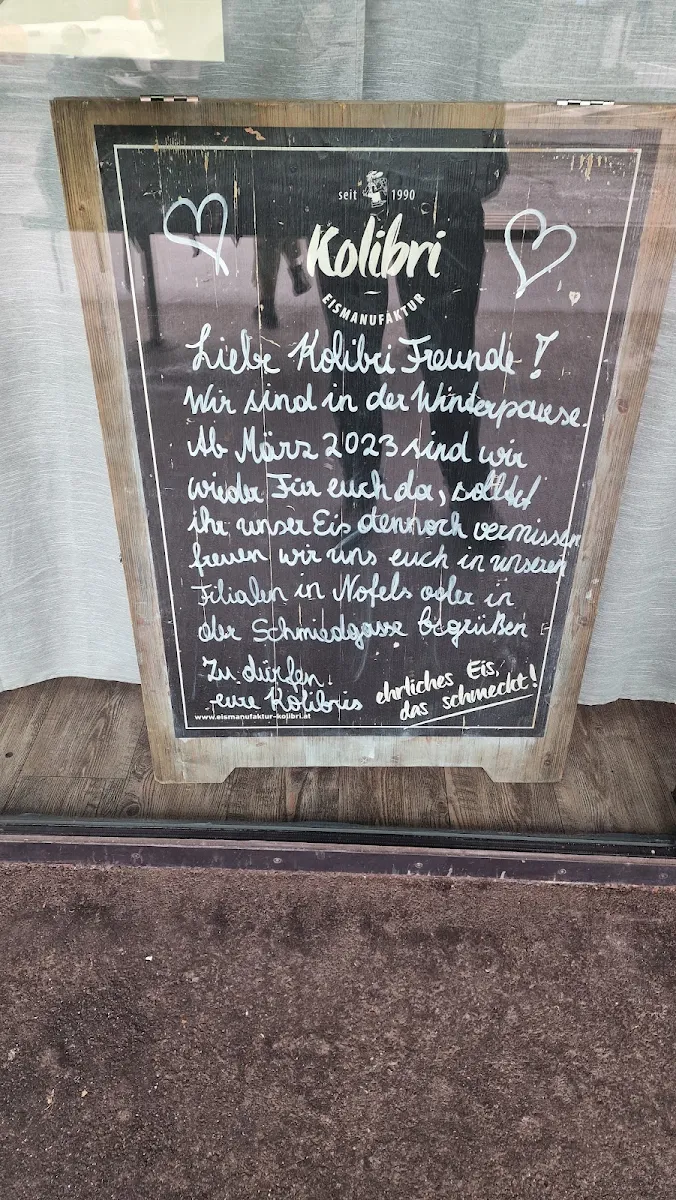 seit 1990
Kolibri
EISMANUFAKTUR
Liebe Kolibri Freunde!
Wir sind in der Winterpause.
Ab März 2023 sind wir
wieder Für euch da, solltet
ihr unser Eis dennoch vermissen
freuen wir uns euch in unseren
Filialen in Nofels oder in
der Schmiedgasse begrüßen
Zu dürfen.
eure Kolibris
ehrliches Eis,
das schmeckt!
www.eismanufaktur-kolibri.at